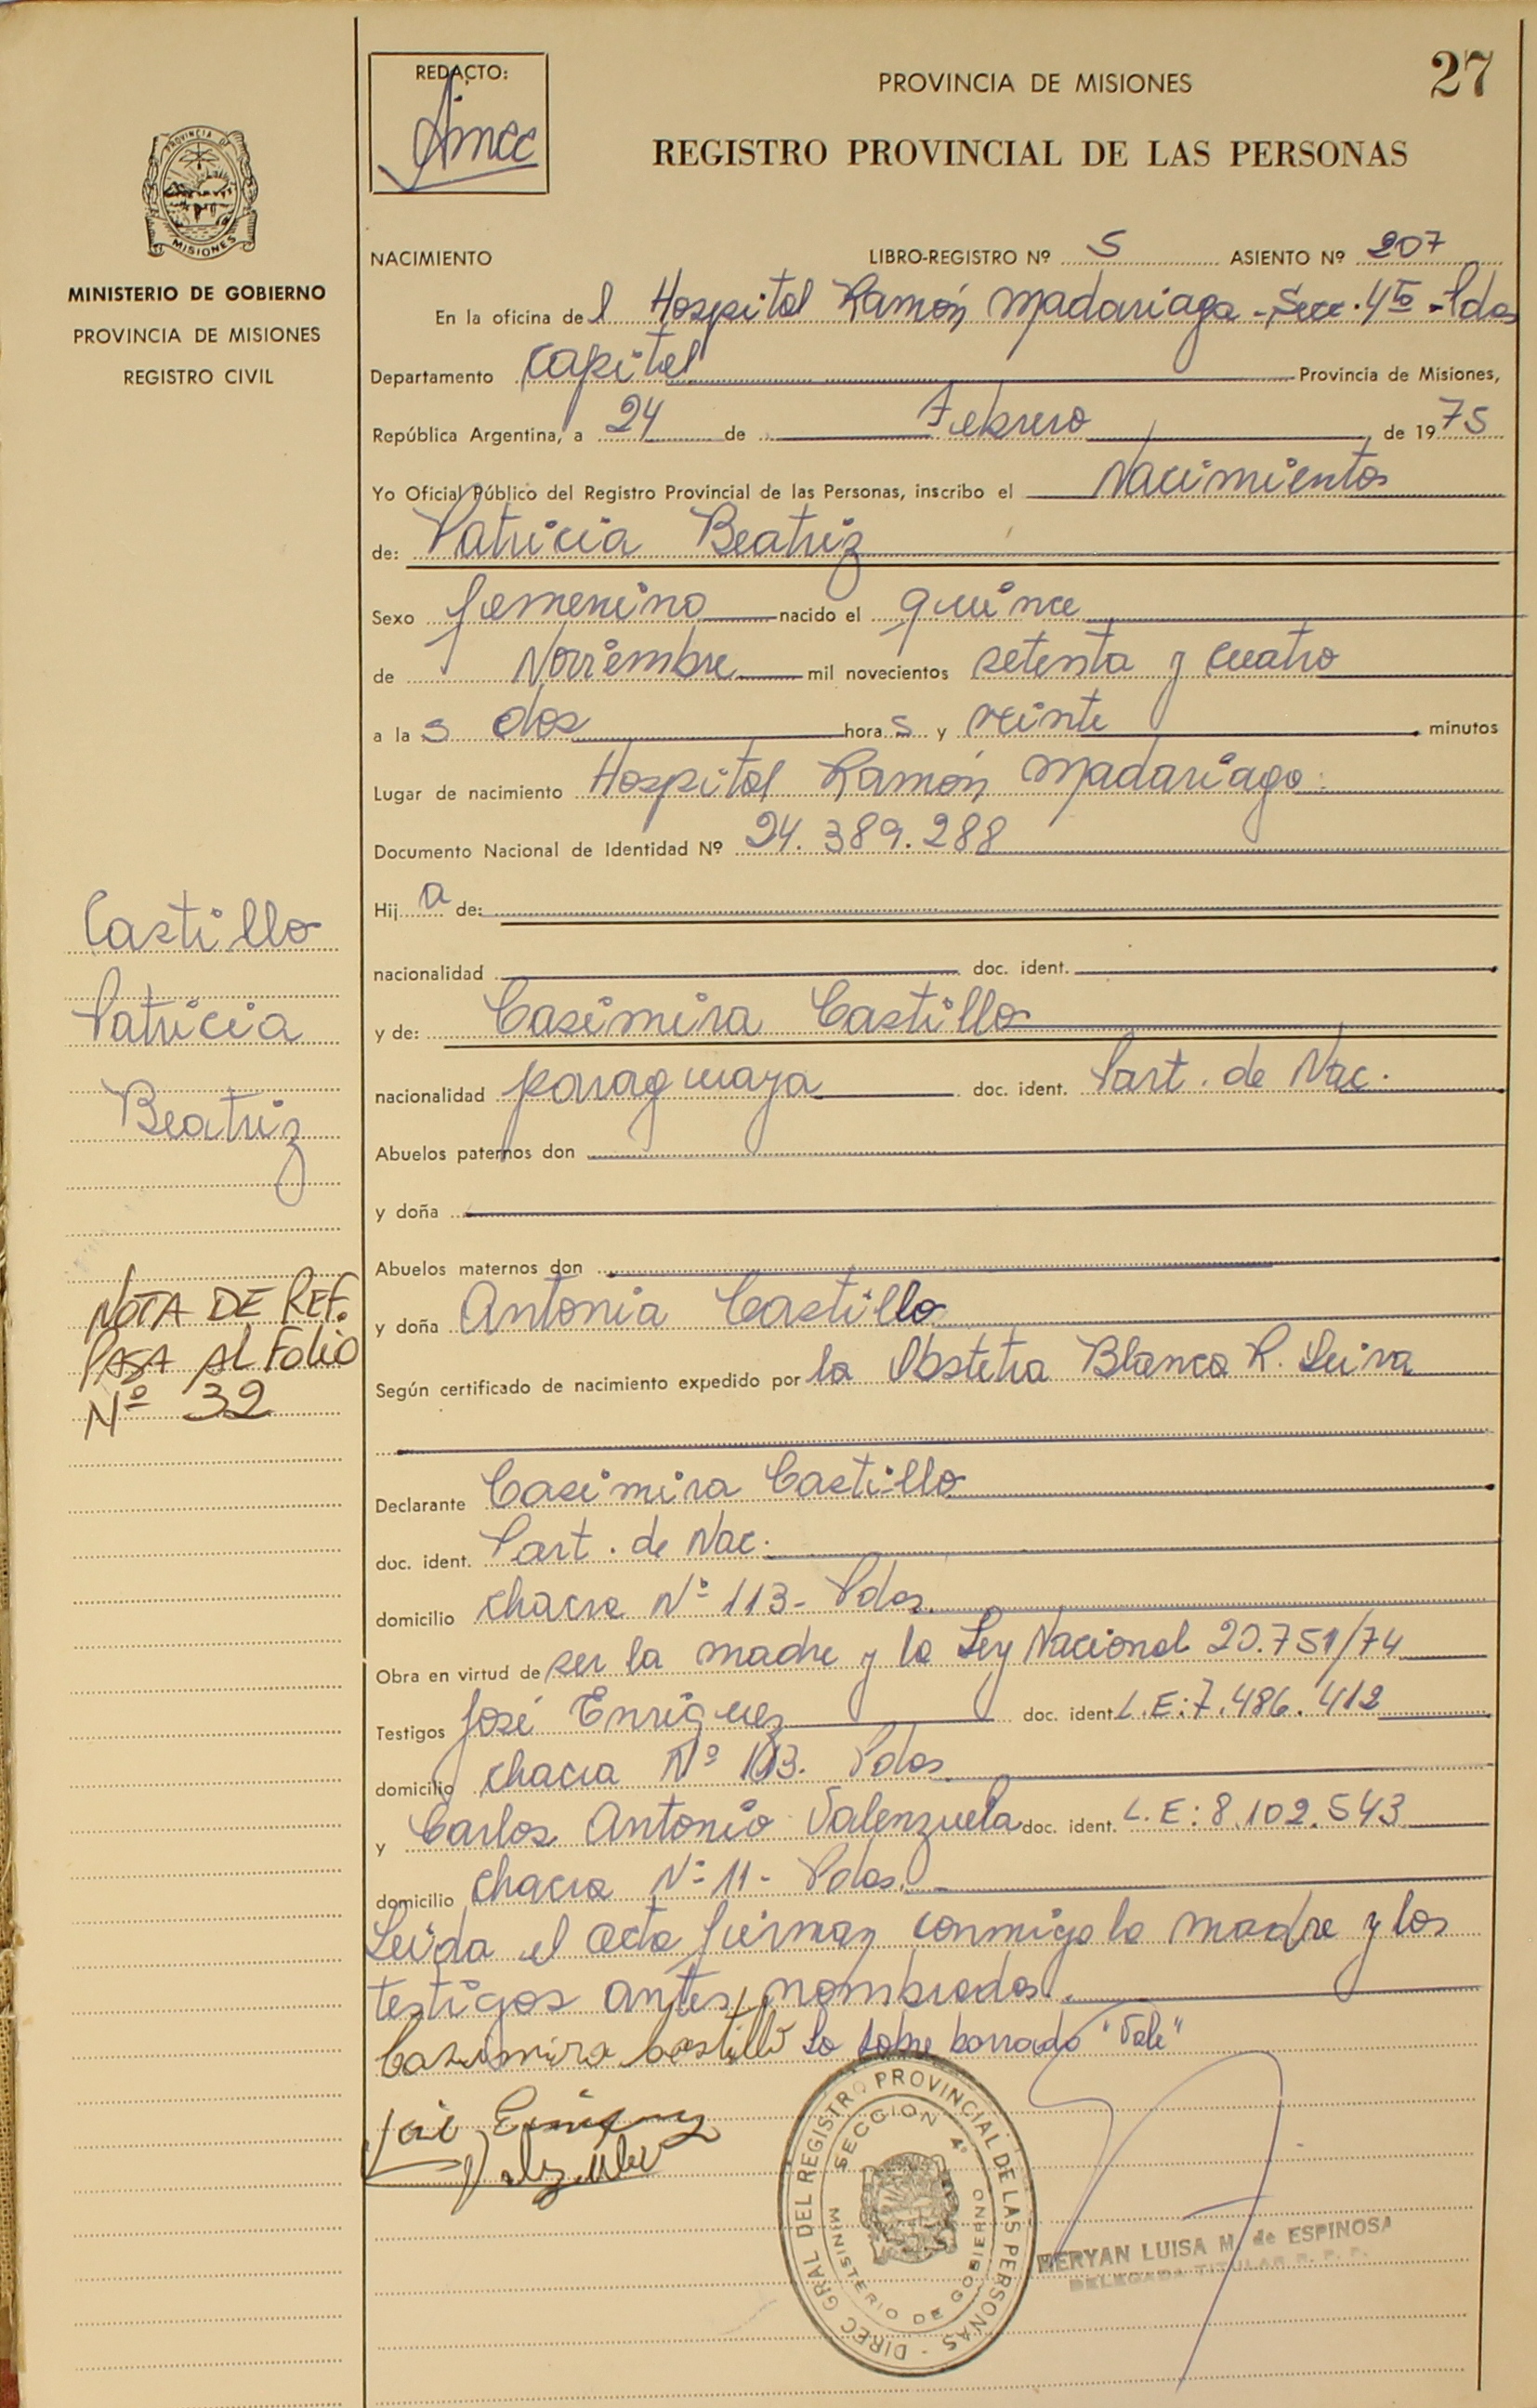 27
REDACTO:
PROVINCIA DE MISIONES
REGISTRO PROVINCIAL DE LAS PERSONAS
PROVINCIA DE
MISIONES
MINISTERIO DE GOBIERNO
PROVINCIA DE MISIONES
REGISTRO CIVIL
NACIMIENTO LIBRO-REGISTRO Nº 5 ASIENTO Nº 207
En la oficina del Hospital Ramón Madariaga - Secc. 4ta - Pdas
Departamento Capital Provincia de Misiones,
República Argentina, a 24 de Febrero de 1975
Yo Oficial Público del Registro Provincial de las Personas, inscribo el Nacimientos
de: Patricia Beatriz
Sexo femenino nacido el quince
de Noviembre mil novecientos setenta y cuatro
a las dos horas y veinte minutos
Lugar de nacimiento Hospital Ramón Madariaga
Documento Nacional de Identidad Nº 24.389.288
Hija de:
nacionalidad doc. ident.
y de: Casimira Castillo
nacionalidad paraguaya doc. ident. Part. de Nac.
Abuelos paternos don
y doña
Abuelos maternos don
y doña Antonia Castillo
Según certificado de nacimiento expedido por la Obstetra Blanca R. Leiva
Declarante Casimira Castillo
doc. ident. Part. de Nac.
domicilio chacra Nº 113- Pdas.
Obra en virtud de ser la madre y la Ley Nacional 20.751/74
Testigos José Enriquez doc. ident. L.E: 7.486.412
domicilio chacra Nº 113. Pdas
y Carlos Antonio Valenzuela doc. ident. L.E: 8.102.543
domicilio Chacra Nº 11- Pdas.
Leída el acta firman conmigo la madre y los
testigos antes nombrados.
Casimira Castillo Lo sobre borrado "Vale"
José Enriquez
Castillo
Patricia
Beatriz
NOTA DE REF.
PASA AL FOLIO
Nº 32
DIREC GRAL DEL REGISTRO PROVINCIAL DE LAS PERSONAS -
SECCION 4º
MINISTERIO DE GOBIERNO
MERYAN LUISA M. de ESPINOSA
DELEGADA TITULAR R. P. P.